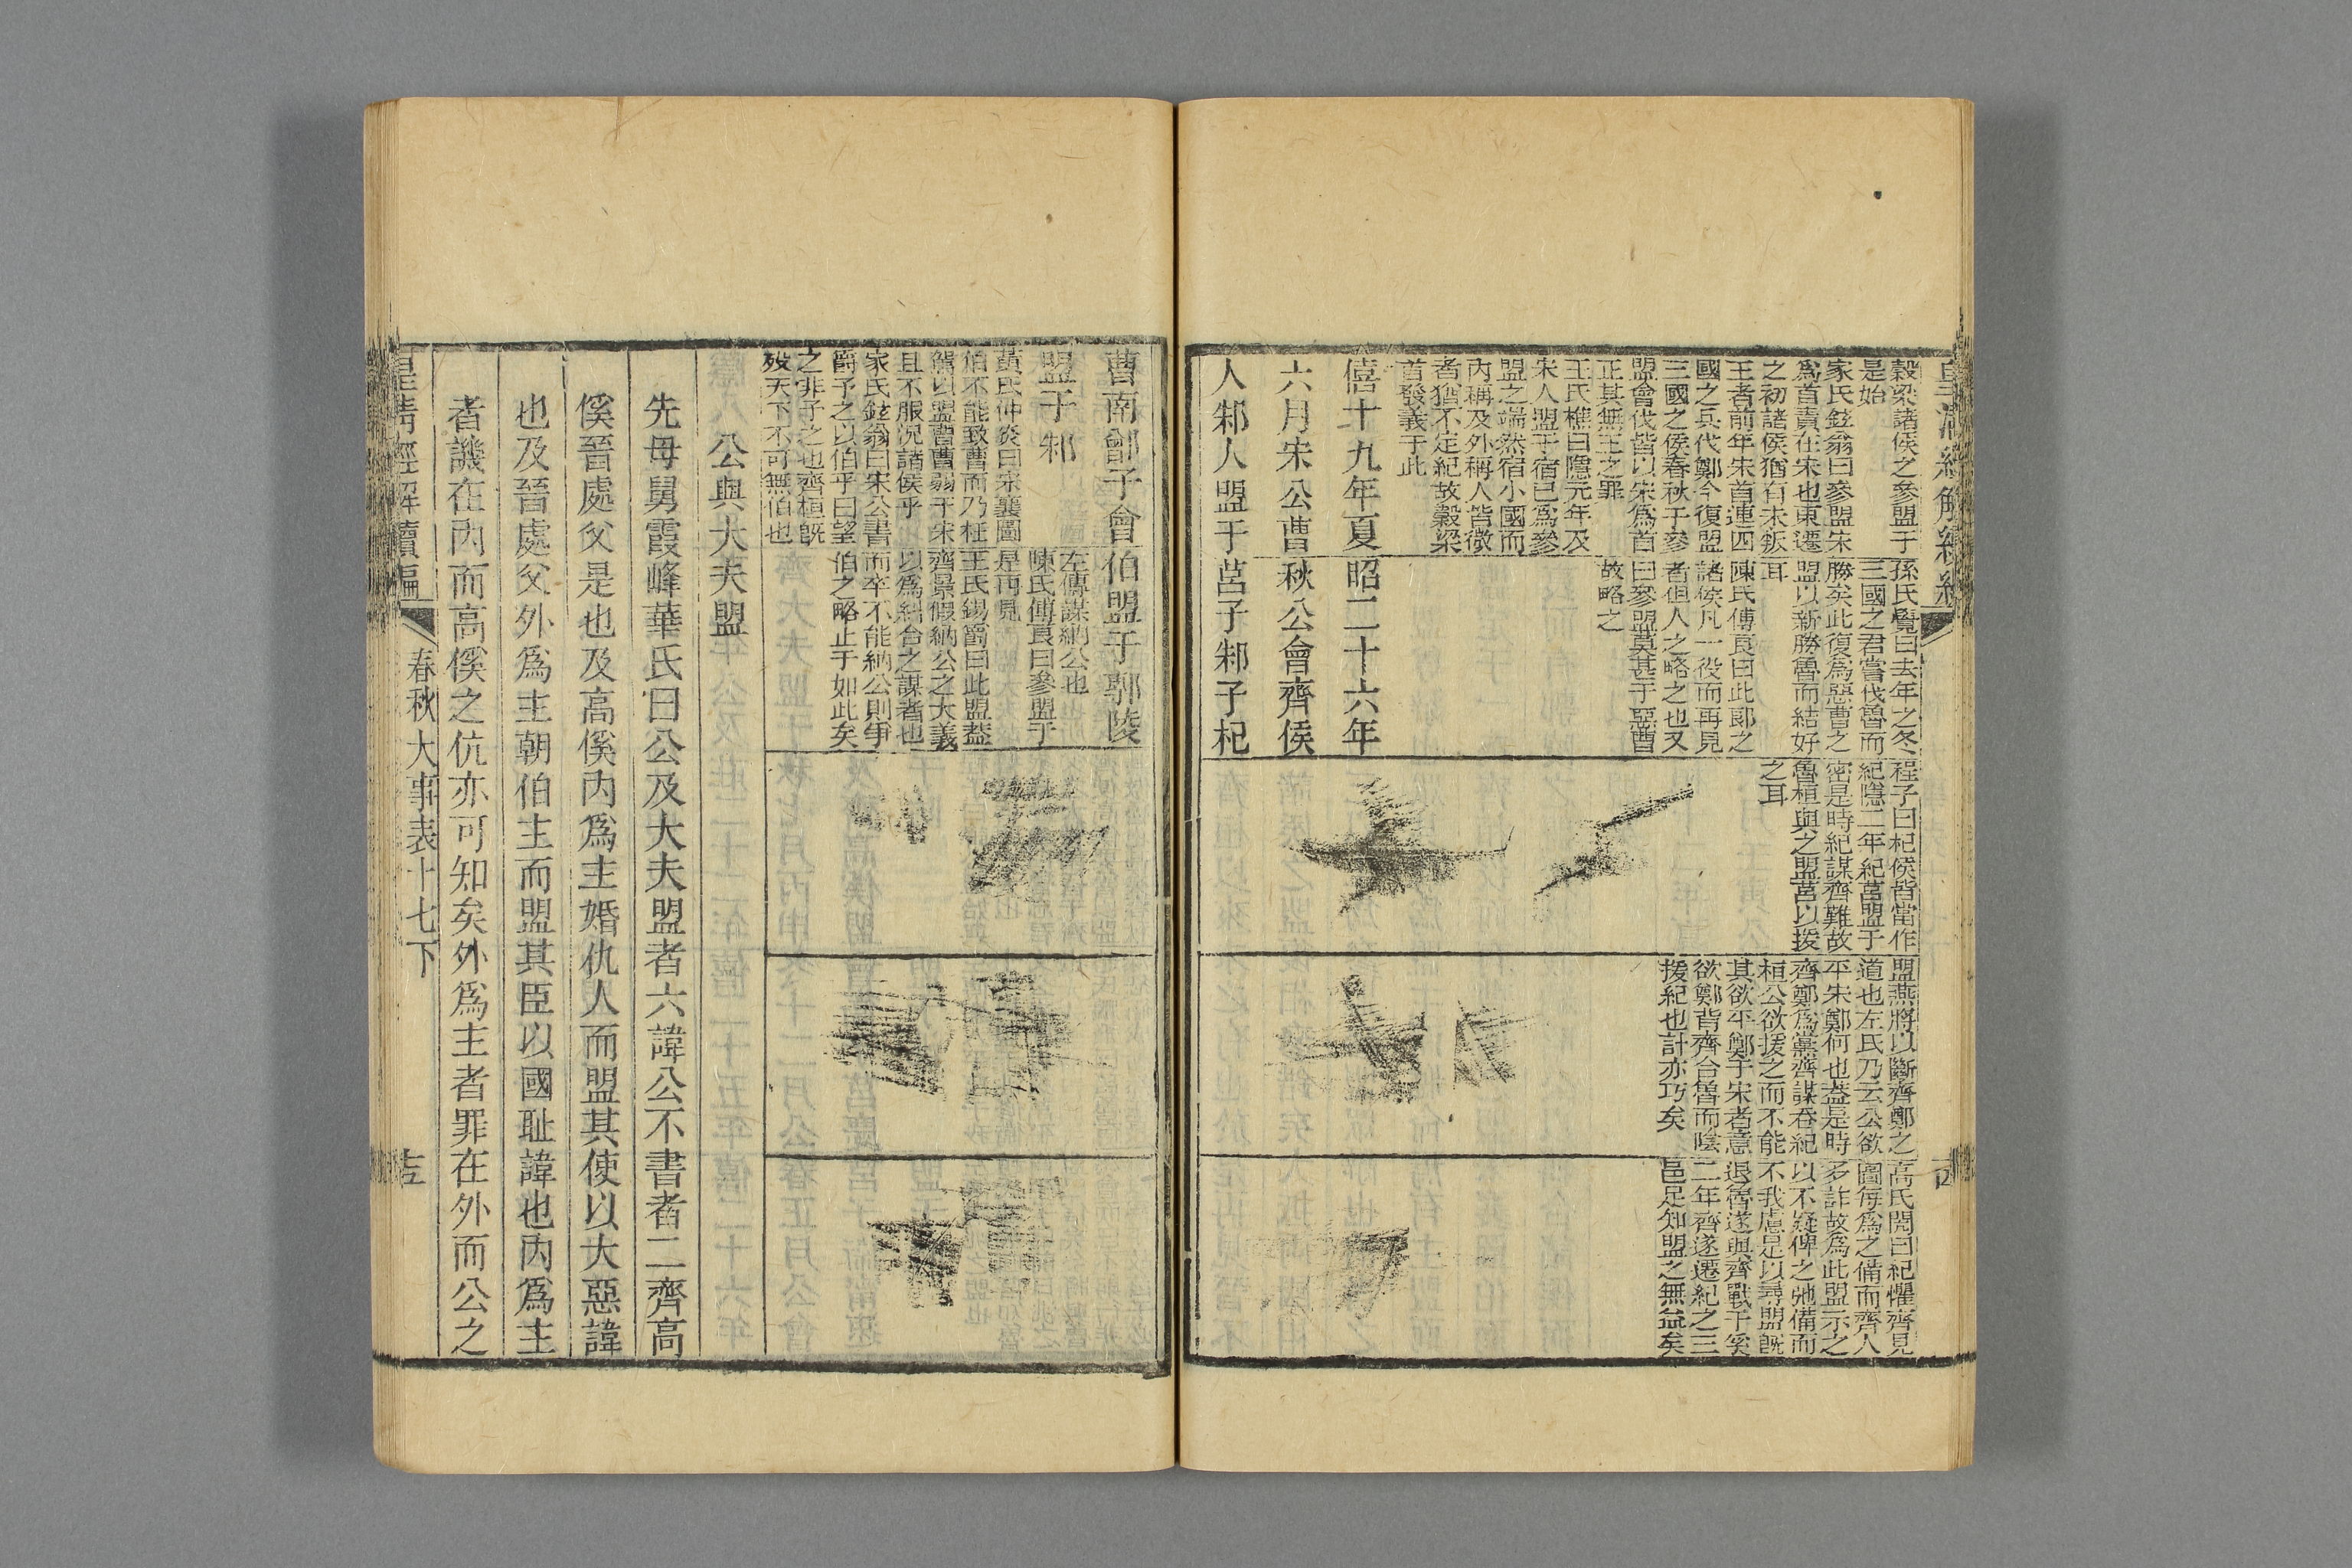 皇清經解續編
穀梁諸侯之參盟于
是始
家氏鉉翁曰參盟宋
爲首責在宋也東遷
之初諸侯猶有未叛
王者前年宋首連四
國之兵伐鄭今復盟
三國之侯春秋于參
盟會伐皆以宋爲首
正其無王之罪
王氏樵曰隱元年及
宋人盟于宿已爲參
盟之端然宿小國而
內稱及外稱人皆微
者猶不定紀故穀梁
首發義于此
僖十九年夏
六月宋公曹
人邾人盟于
孫氏覺曰去年之冬
三國之君嘗伐魯而
勝矣此復爲惡曹之
盟以新勝魯而結好
耳
陳氏傅良曰此郎之
諸侯凡一役而再見
者但人之略之也又
曰參盟莫甚于惡曹
故略之
昭二十六年
秋公會齊侯
莒子邾子杞
程子曰杞侯皆當作
紀隱二年紀莒盟于
密是時紀謀齊難故
魯桓與之盟莒以援
之耳
盟燕將以斷齊鄭之
道也左氏乃云公欲
平宋鄭何也蓋是時
齊鄭爲黨齊謀吞紀
桓公欲援之而不能
其欲平鄭于宋者意
欲鄭背齊合魯而陰
援紀也計亦巧矣
高氏閌曰紀懼齊見
圖每爲之備而齊人
多詐故爲此盟示之
以不疑俾之弛備而
不我慮是以尋盟旣
退魯遂與齊戰于奚
二年齊遂遷紀之三
邑足知盟之無益矣
曹南鄫子會
盟于邾
黃氏仲炎曰宋襄圖
伯不能致曹而乃枉
駕以盟曹曹弱于宋
且不服況諸侯乎
家氏鉉翁曰宋公書
爵予之以伯乎曰望
之非予之也齊桓旣
歿天下不可無伯也
伯盟于鄟陵
左傳謀納公也
陳氏傅良曰參盟于
是再見
王氏錫爵曰此盟蓋
齊景假納公之大義
以爲糾合之謀者也
而卒不能納公則爭
伯之略止于如此矣
公與大夫盟
先母舅霞峰華氏曰公及大夫盟者六諱公不書者二齊高
傒晉處父是也及高傒內爲主婚仇人而盟其使以大惡諱
也及晉處父外爲主朝伯主而盟其臣以國耻諱也內爲主
者譏在內而高傒之伉亦可知矣外爲主者罪在外而公之
皇清經解續編
春秋大事表十七下